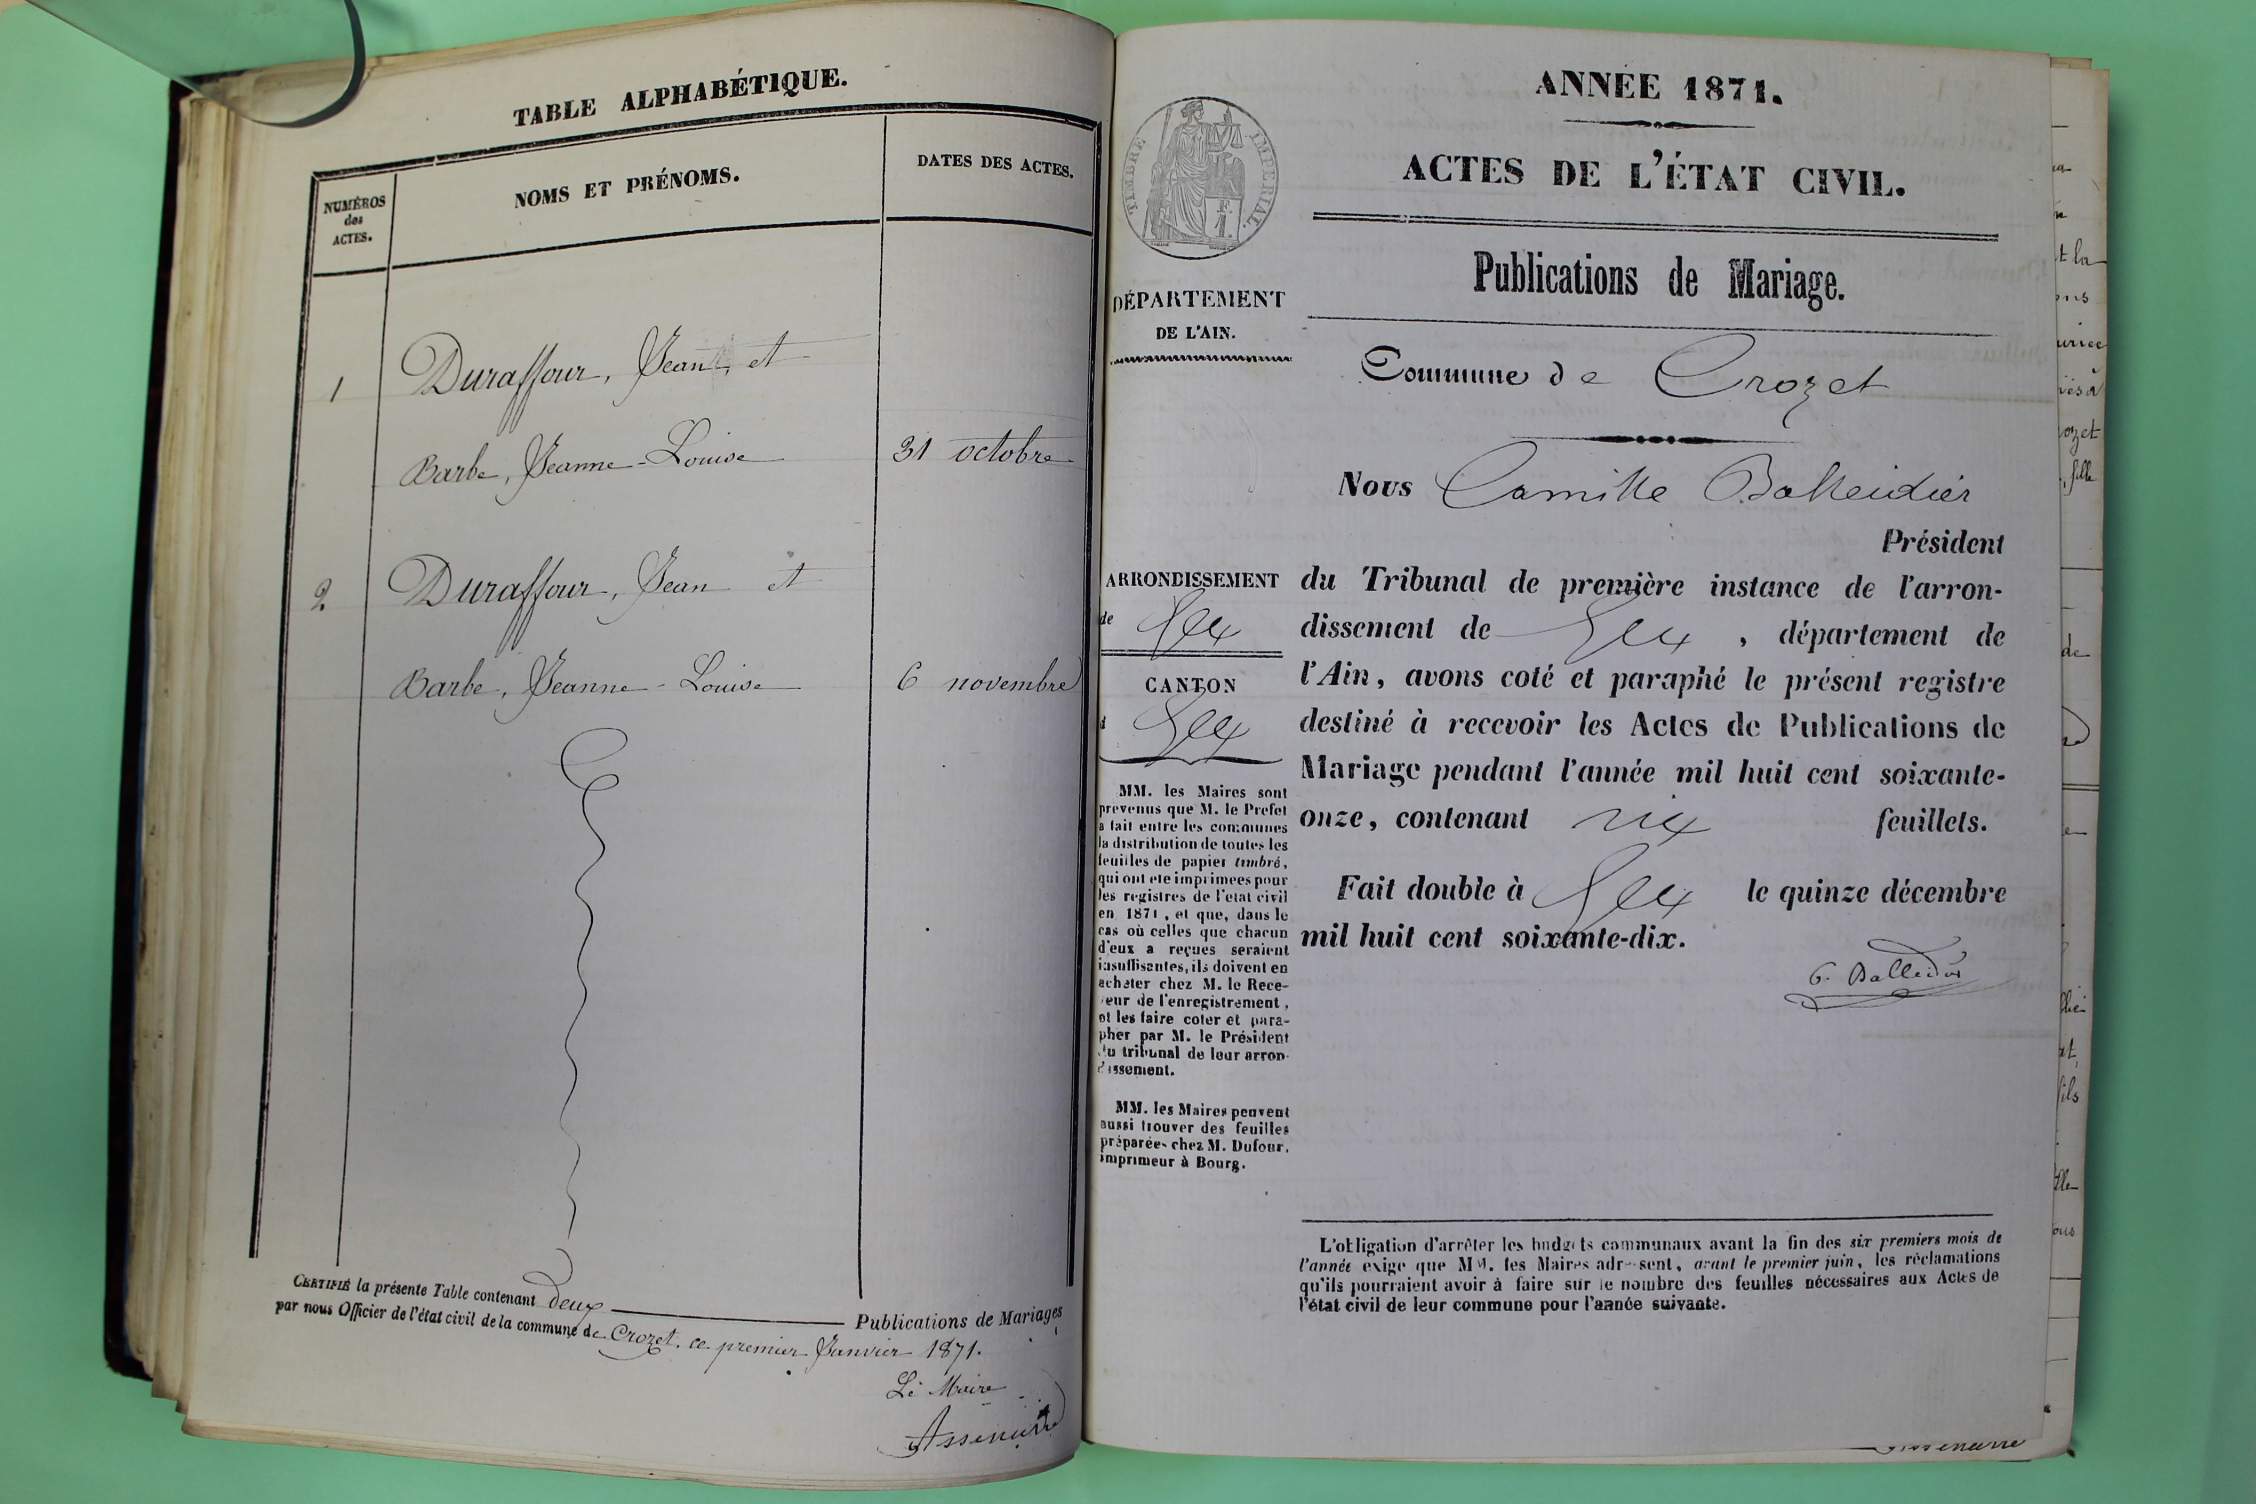 TABLE ALPHABÉTIQUE.
NUMÉROS
des
ACTES.
NOMS ET PRÉNOMS.
DATES DES ACTES.
1
Duraffour, Jean, et
Barbe, Jeanne-Louise
31 octobre
2.
Duraffour, Jean et
Barbe, Jeanne-Louise
6 novembre
CERTIFIÉ la présente Table contenant deux Publications de Mariages
par nous Officier de l'état civil de la commune de Crozet, ce premier Janvier 1871.
Le Maire
ANNÉE 1871.
ACTES DE L'ÉTAT CIVIL.
Publications de Mariage.
TIMBRE IMPÉRIAL.
1 F.
DÉPARTEMENT
DE L'AIN.
Commune de Crozet
Nous Camille Balleidier
Président
du Tribunal de première instance de l'arron-
dissement de Gex, département de
l'Ain, avons coté et paraphé le présent registre
destiné à recevoir les Actes de Publications de
Mariage pendant l'année mil huit cent soixante-
onze, contenant six feuillets.
Fait double à Gex le quinze décembre
mil huit cent soixante-dix.
C. Balleidier
ARRONDISSEMENT
de Gex
CANTON
d Gex
MM. les Maires sont
prévenus que M. le Prefet
a fait entre les communes
la distribution de toutes les
feuilles de papier timbré,
qui ont eté imprimees pour
les registres de l'etat civil
en 1871, et que, dans le
cas où celles que chacun
d'eux a reçues seraient
insuffisantes, ils doivent en
acheter chez M. le Rece-
veur de l'enregistrement,
et les faire coter et para-
pher par M. le Président
du tribunal de leur arron-
dissement.
MM. les Maires peuvent
aussi trouver des feuilles
préparées chez M. Dufour,
imprimeur à Bourg.
L'obligation d'arrêter les budgets communaux avant la fin des six premiers mois de
l'année exige que MM. les Maires adressent, avant le premier juin, les réclamations
qu'ils pourraient avoir à faire sur le nombre des feuilles nécessaires aux Actes de
l'état civil de leur commune pour l'année suivante.